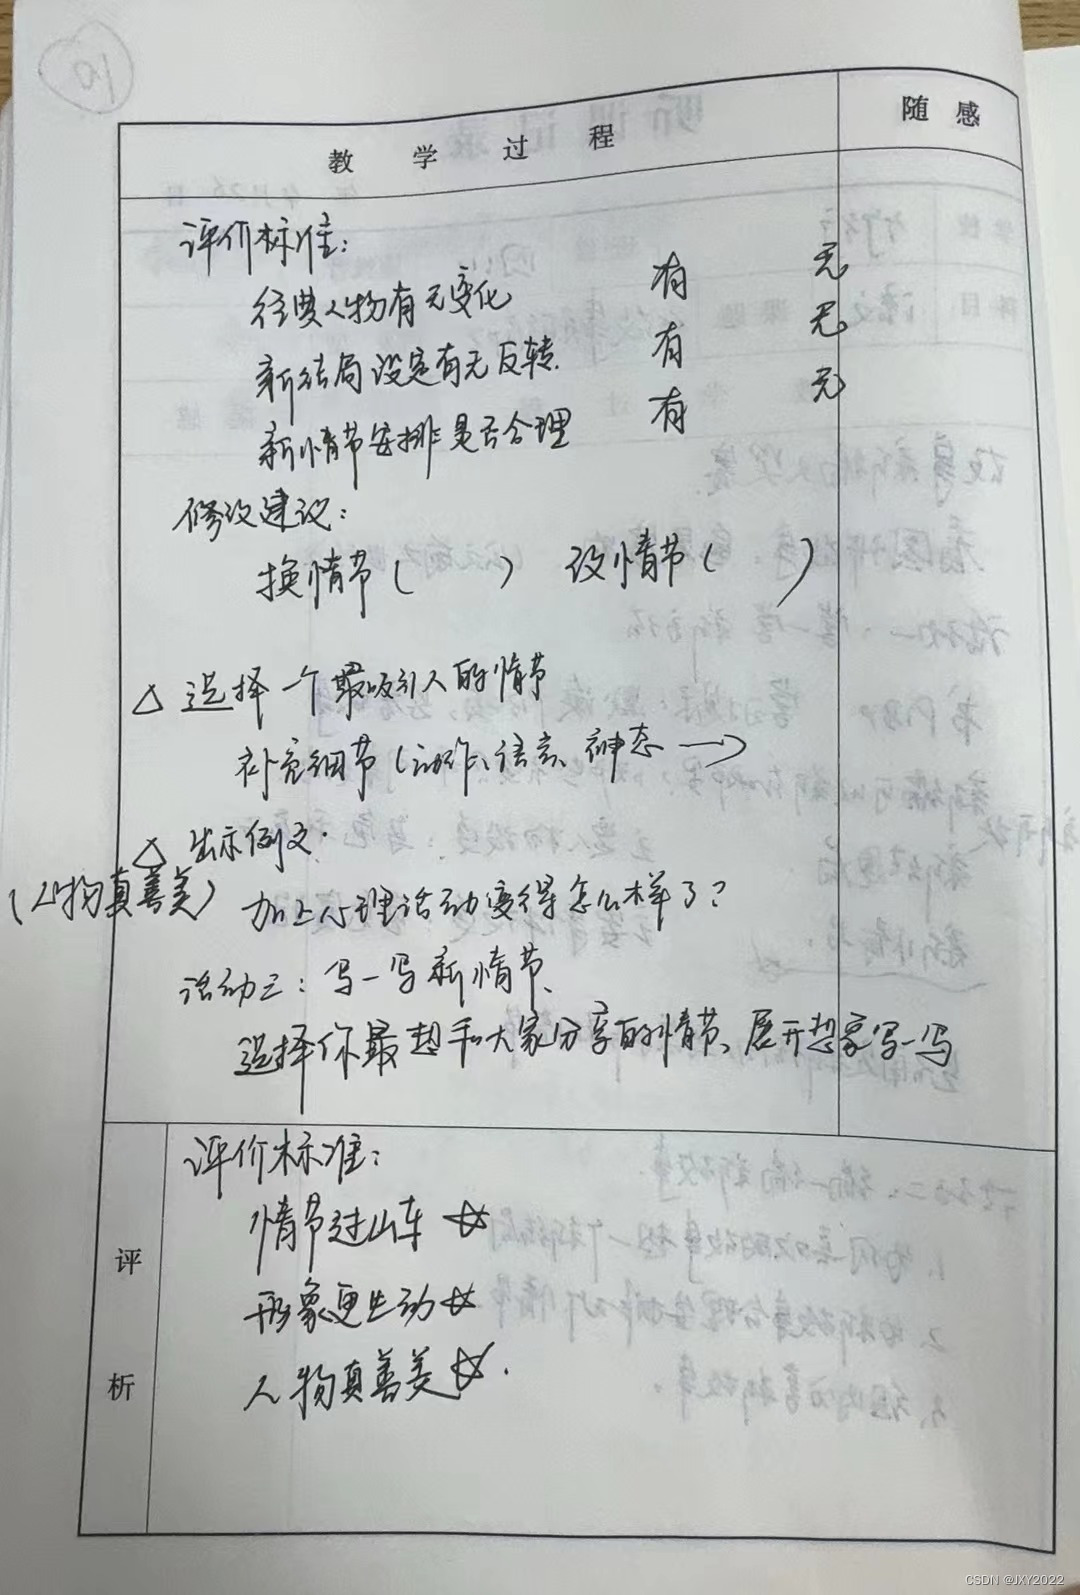 10
教学过程
随感
评价标准：
往要人物有无变化 有 无
新结局设定有无反转. 有 无
新情节安排是否合理 有 无
修改建议：
换情节（ ） 改情节（ ）
△ 选择一个最吸引人的情节
补充细节（动作、语言、神态 →
△ 出示例文.
（人物真善美）
加上心理活动变得怎么样了？
活动三：写一写新情节、
选择你最想和大家分享的情节、展开想象写一写
评析
评价标准：
情节过山车 ☆
形象更生动 ☆
人物真善美 ☆.
CSDN @JXY2022